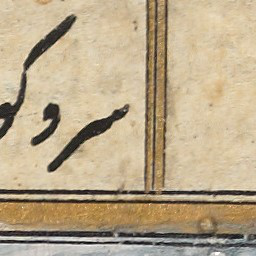 سر و کو